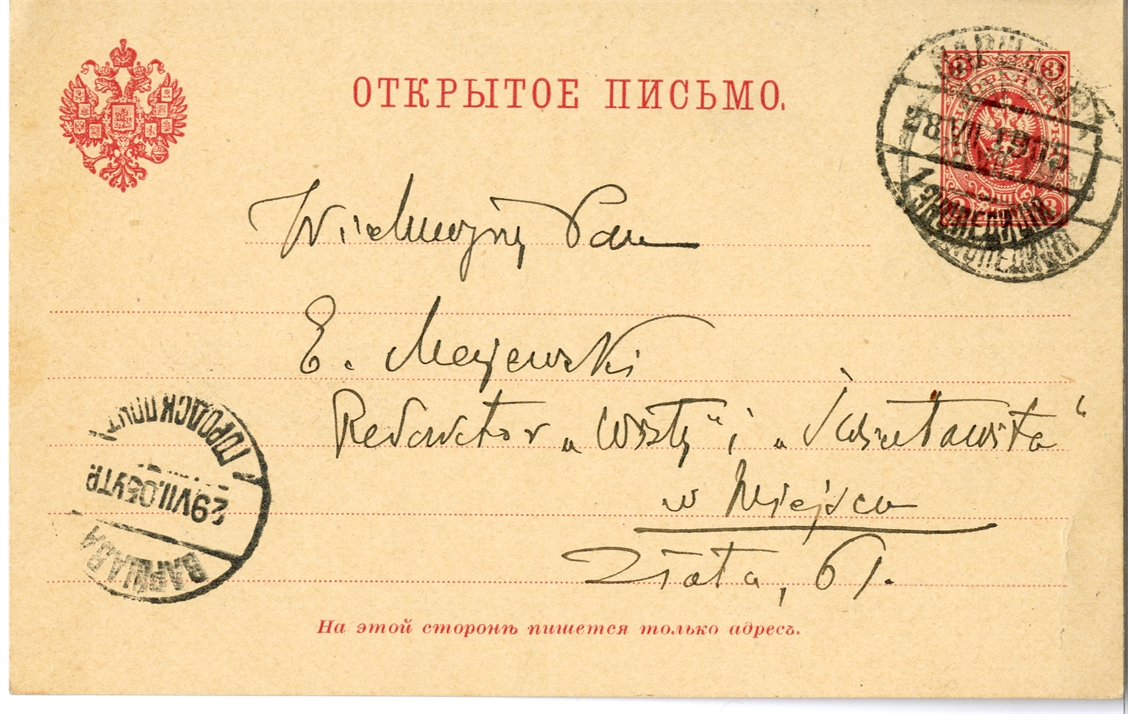 ОТКРЫТОЕ ПИСЬМО.
3 3
3 3
Wielmożny Pan
E. Majewski
Redaktor „Wisły" i „Światowita"
w Miejscu
Złota, 61.
ВАРШАВА
29 VII.05 УТР.
ГОРОДСК ПОЧТ
На этой сторонѣ пишется только адресъ.